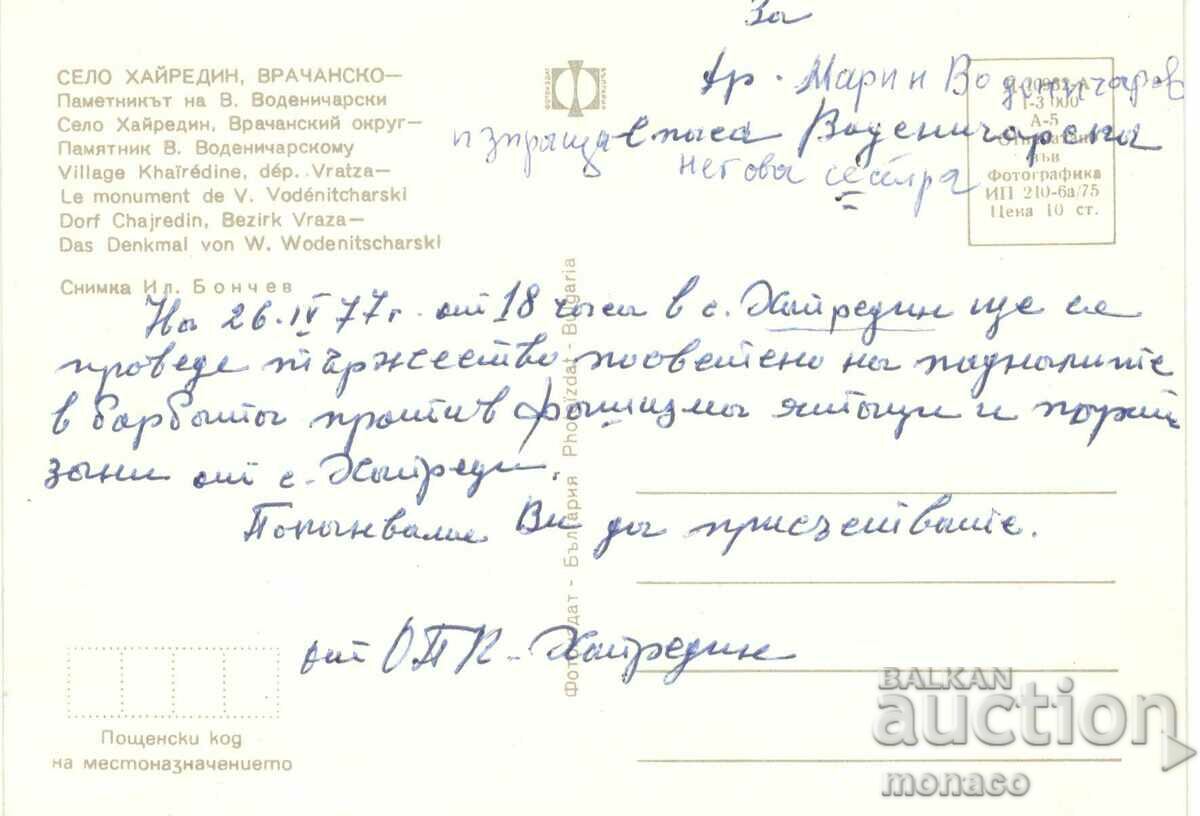 За
др. Марин Воденичаров
изпраща Воденичарска
негова сестра
СЕЛО ХАЙРЕДИН, ВРАЧАНСКО—
Паметникът на В. Воденичарски
Село Хайредин, Врачанский округ—
Памятник В. Воденичарскому
Village Khaïrédine, dép. Vratza—
Le monument de V. Vodénitcharski
Dorf Chajredin, Bezirk Vraza—
Das Denkmal von W. Wodenitscharski
Снимка Ил. Бончев
А-5
Фотографика
ИП 210-6а/75
Цена 10 ст.
На 26. IV 77 г. от 18 часа в с. Хайредин ще се
проведе тържество посветено на падналите
в борбата против фашизма ятаци и парти
зани от с. Хайредин.
Поканваме Ви да присъствате.
от ОПК - Хайредин
Фотоиздат - България Photoïzdat - Bulgaria
Пощенски код
на местоназначението
BALKAN
auction
monaco